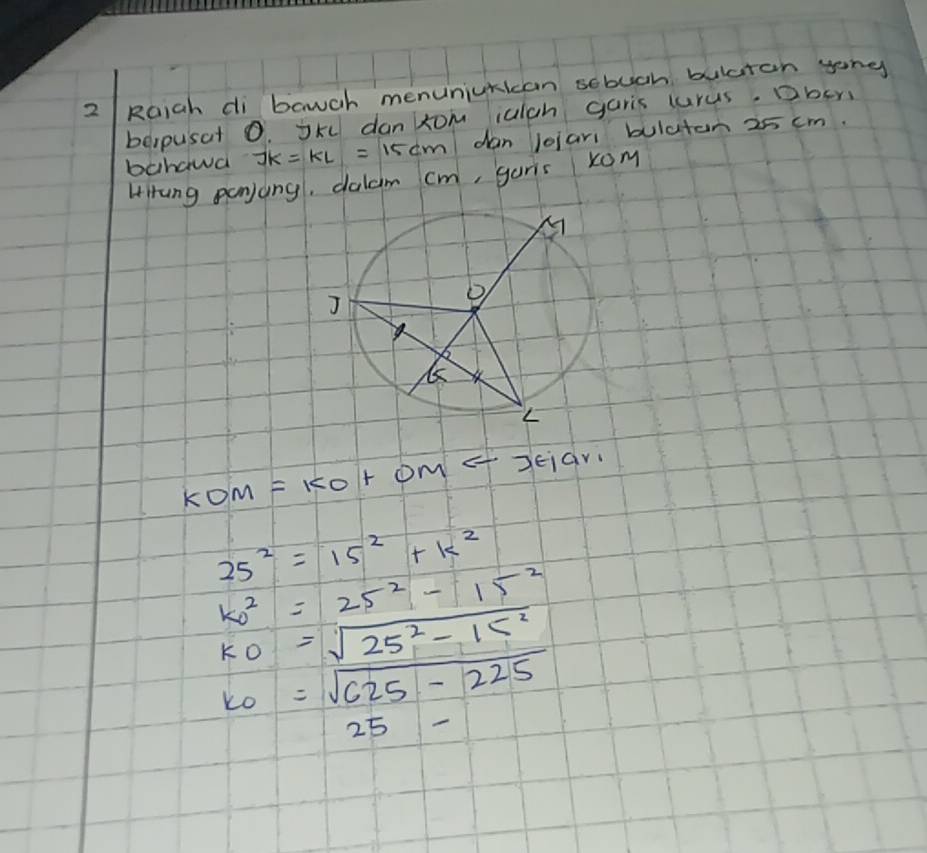 2 Rajah di bawah menunjukkan sebuah bulatan yang
berpusat O. JKL dan KOM ialah garis lurus. Diberi
bahawa JK = KL = 15 cm dan jejari bulatan 25 cm.
Hitung panjang, dalam cm, garis KOM
M
J
O
K
L
KOM = KO + OM ← Jejari
25² = 15² + k²
KO² = 25² - 15²
KO = √25² - 15²
KO = √625 - 225
25 -